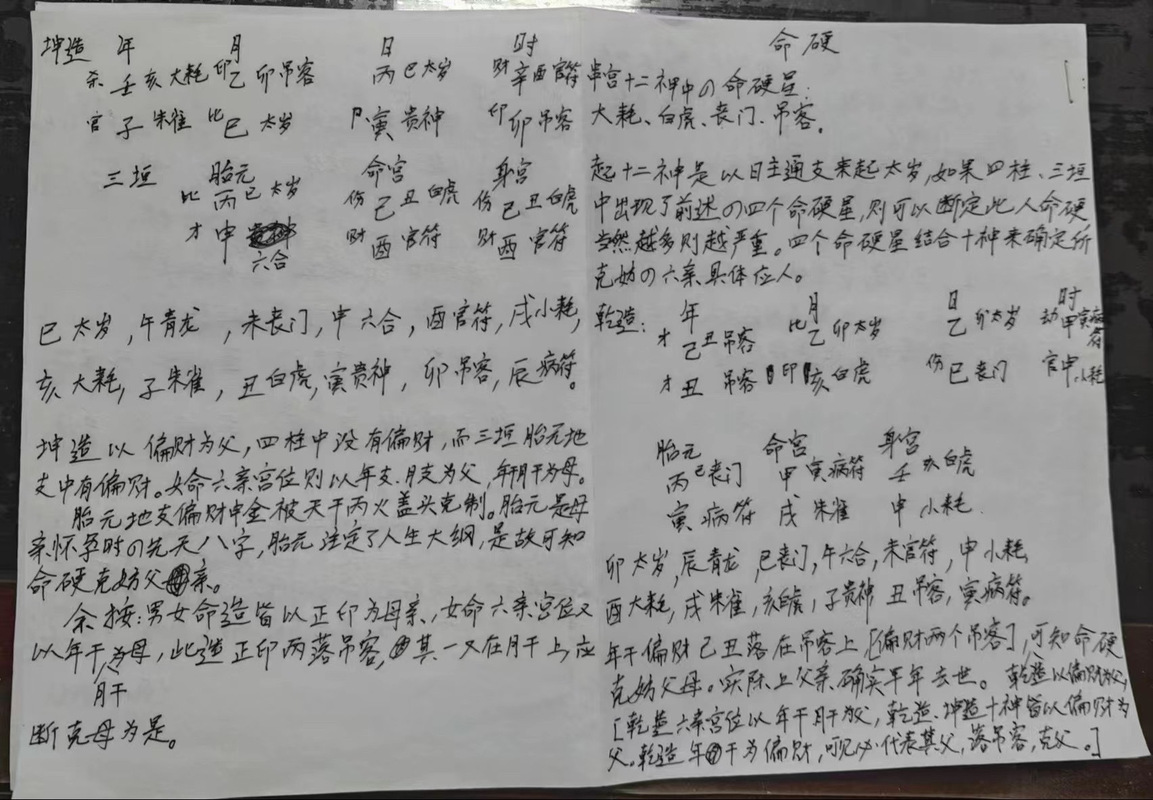 坤造 年 月 日 时
杀 壬 亥 大耗 印 乙 卯 吊客 丙 巳 太岁 财 辛 酉 官符
官 子 朱雀 比 巳 太岁 卩 寅 贵神 印 卯 吊客
三垣 胎元 命宫 身宫
比 丙 巳 太岁 伤 己 丑 白虎 伤 己 丑 白虎
才 申 六合 财 酉 官符 财 酉 官符
巳太岁,午青龙,未丧门,申六合,酉官符,戌小耗,
亥大耗,子朱雀,丑白虎,寅贵神,卯吊客,辰病符。
坤造以偏财为父,四柱中没有偏财,而三垣胎元地
支中有偏财。女命六亲宫位则以年支、月支为父,年干月干为母。
胎元地支偏财申金被天干丙火盖头克制。胎元是母
亲怀孕时の先天八字,胎元注定了人生大纲,是故可知
命硬克妨父亲。
余按:男女命造皆以正印为母亲,女命六亲宫位又
以年干月干为母,此造正印两落吊客,其一又在月干上,应
断克母为是。
命硬
串宫十二神中の命硬星:
大耗、白虎、丧门、吊客。
起十二神是以日主通支来起太岁,如果四柱、三垣
中出现了前述の四个命硬星,则可以断定此人命硬
当然越多则越严重。四个命硬星结合十神来确定所
克妨の六亲具体应人。
乾造: 年 月 日 时
才 己 丑 吊客 比 乙 卯 太岁 乙 卯 太岁 劫 甲 寅 病符
才 丑 吊客 印 亥 白虎 伤 巳 丧门 官 申 小耗
胎元 命宫 身宫
丙 巳 丧门 甲 寅 病符 壬 亥 白虎
寅 病符 戌 朱雀 申 小耗
卯太岁,辰青龙,巳丧门,午六合,未官符,申小耗
酉大耗,戌朱雀,亥白虎,子贵神 丑吊客,寅病符。
年干偏财己丑落在吊客上,[偏财两个吊客],可知命硬
克妨父母。实际上父亲确实早年去世。 乾造以偏财为父,
[乾造六亲宫位以年干月干为父,乾造、坤造十神皆以偏财为
父。乾造年干为偏财,可以代表其父,落吊客,克父。]